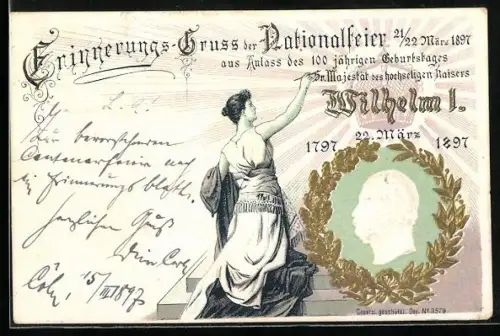 Erinnerungs-Gruss der Nationalfeier 21/22 März 1897
aus Anlass des 100 jährigen Geburtstages
Sr. Majestät des hochseligen Kaisers
Wilhelm I.
22. März
1797 1897
L. C.
Zur bevorstehenden
Centenarfeier noch
ein Erinnerungsblatt.
Herzlichen Gruß
Cöln, 15/III 1897
Gesetz. geschützt. Dep. No. 3579